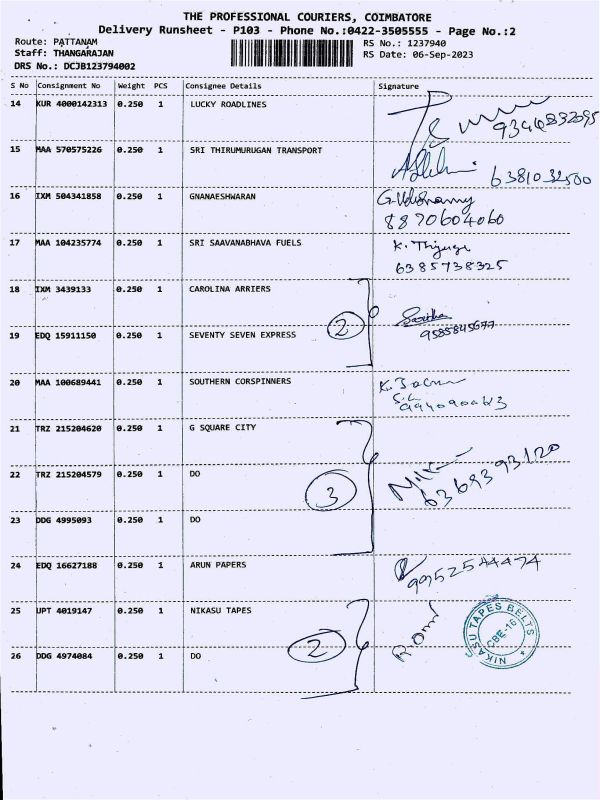 THE PROFESSIONAL COURIERS, COIMBATORE
Delivery Runsheet - P103 - Phone No.:0422-3505555 - Page No.:2
Route: PATTANAM
RS No.: 1237940
Staff: THANGARAJAN
RS Date: 06-Sep-2023
DRS No.: DCJB123794002
S No Consignment No Weight PCS Consignee Details Signature
14 KUR 4000142313 0.250 1 LUCKY ROADLINES
15 MAA 570575226 0.250 1 SRI THIRUMURUGAN TRANSPORT
6381032500
16 IXM 504341858 0.250 1 GNANAESHWARAN
8870604060
17 MAA 104235774 0.250 1 SRI SAAVANABHAVA FUELS
6385738325
18 IXM 3439133 0.250 1 CAROLINA ARRIERS
2
19 EDQ 15911150 0.250 1 SEVENTY SEVEN EXPRESS
9585845677
20 MAA 100689441 0.250 1 SOUTHERN CORSPINNERS
21 TRZ 215204620 0.250 1 G SQUARE CITY
22 TRZ 215204579 0.250 1 DO
3
6369393120
23 DDG 4995093 0.250 1 DO
24 EDQ 16627188 0.250 1 ARUN PAPERS
9952544474
25 UPT 4019147 0.250 1 NIKASU TAPES
2
NIKASU TAPES BELTS
CBE-16
26 DDG 4974084 0.250 1 DO